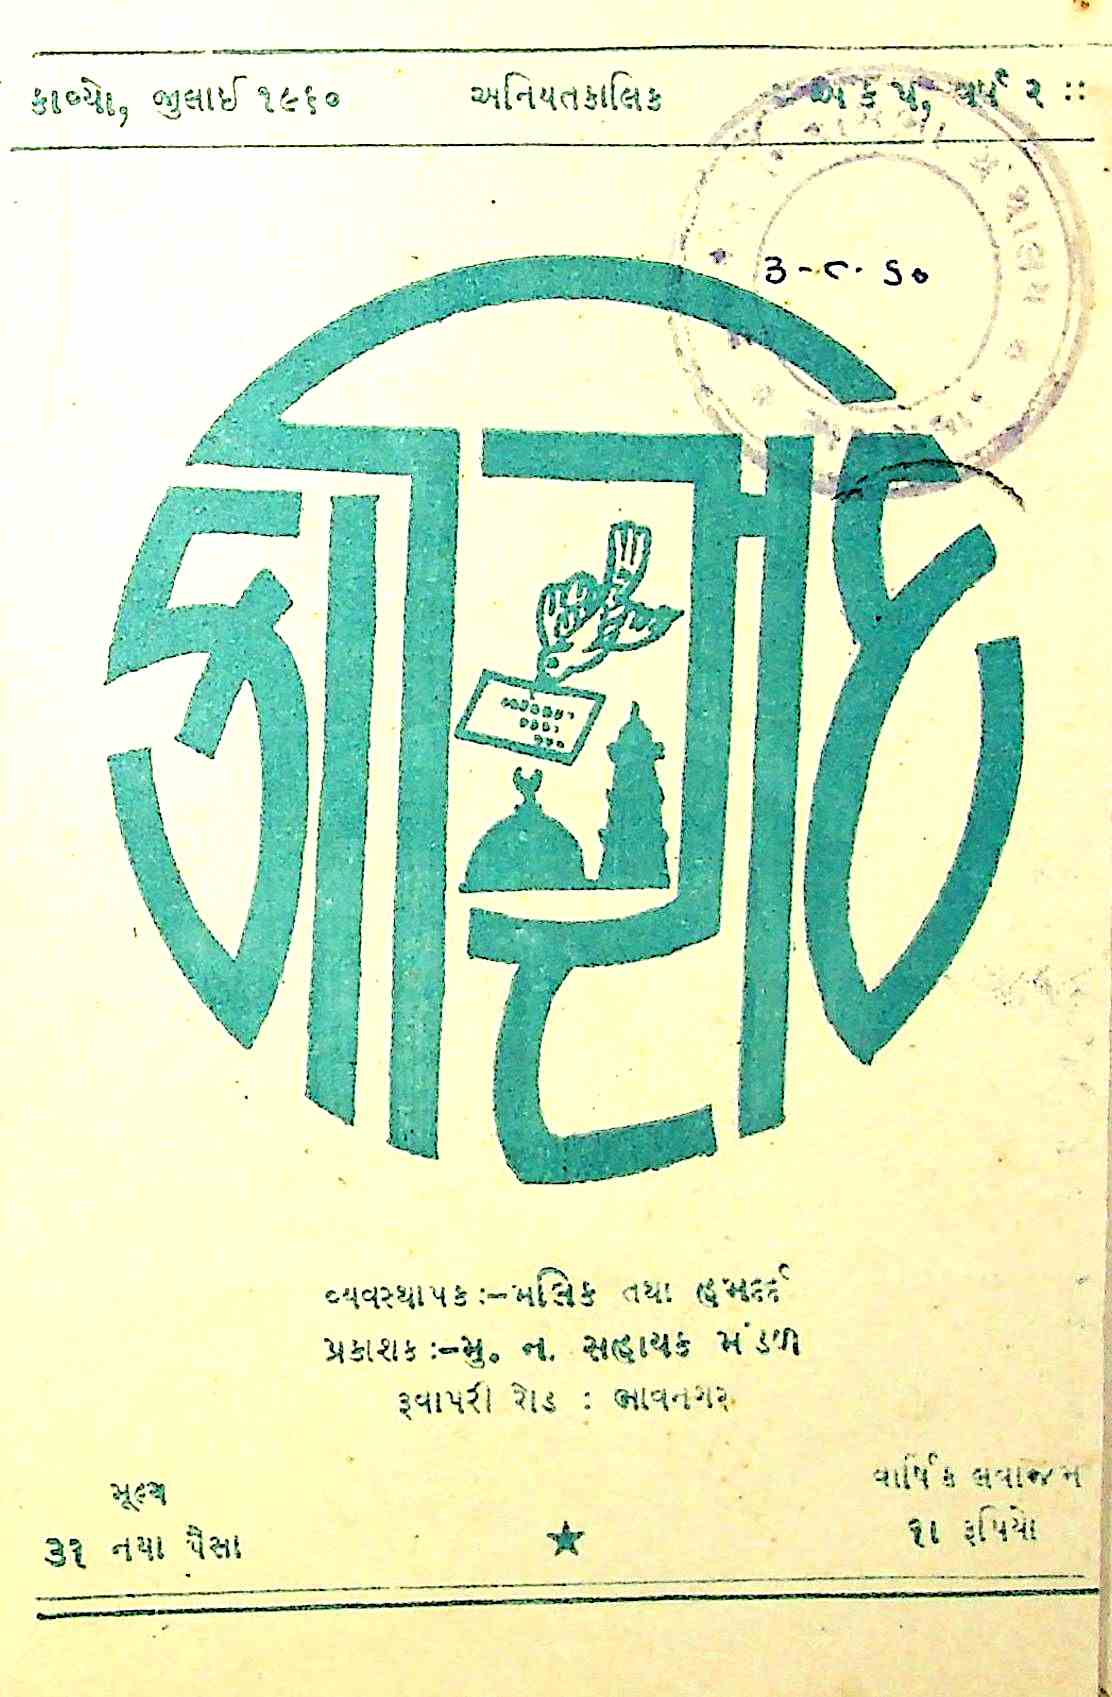 કાવ્યો, જીલાઈ ૧૯૬૦ અનિયતકાલિક અંક ૫, વર્ષ ૨ ::
૩-૮-૬૦
વ્યવસ્થાપક :-મલિક તથા હમદર્દ
પ્રકાશક :-મુ. ન. સહાયક મંડળ
રૂવાપરી રોડ : ભાવનગર
મૂલ્ય
૩૧ નયા પૈસા
વાર્ષિક લવાજમ
૧ા રૂપિયો